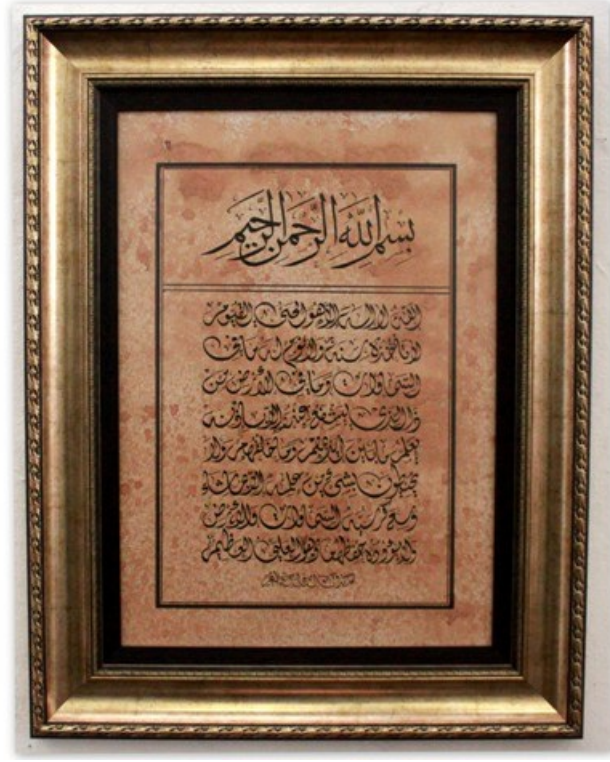 بِسْمِ اللَّهِ الرَّحْمَنِ الرَّحِيمِ
اللّه لا إله إلا هو الحي القيوم
لا تأخذه سنة ولا نوم له ما في
السماوات وما في الأرض من
ذا الذي يشفع عنده إلا بإذنه
يعلم ما بين أيديهم وما خلفهم ولا
يحيطون بشيء من علمه إلا بما شاء
وسع كرسيه السماوات والأرض
ولا يؤوده حفظهما وهو العلي العظيم